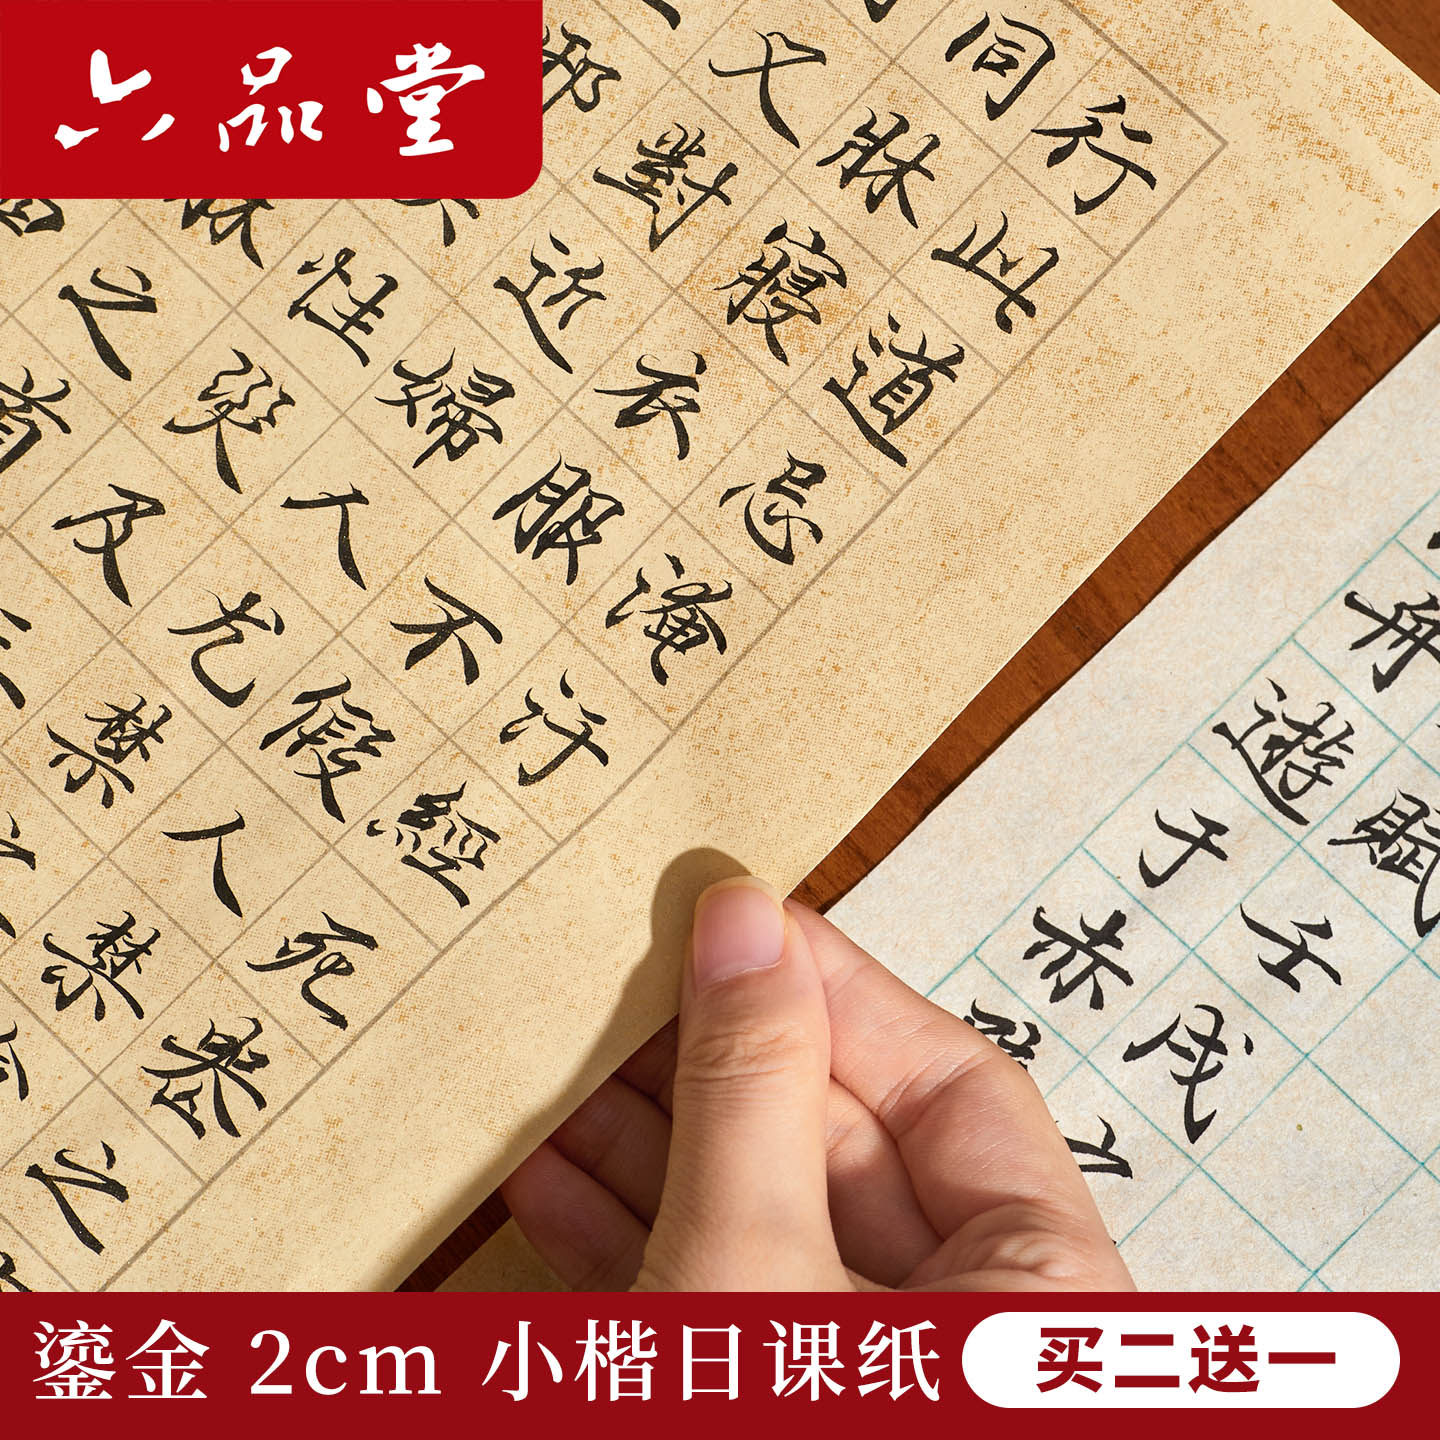 六品堂
行此道忌淹汙經死暴之
同牀寢衣服不假人禁
七對近婦人尤禁
邪 性災及
之首
賦壬戌
舟遊于赤
鎏金 2cm 小楷日课纸
买二送一